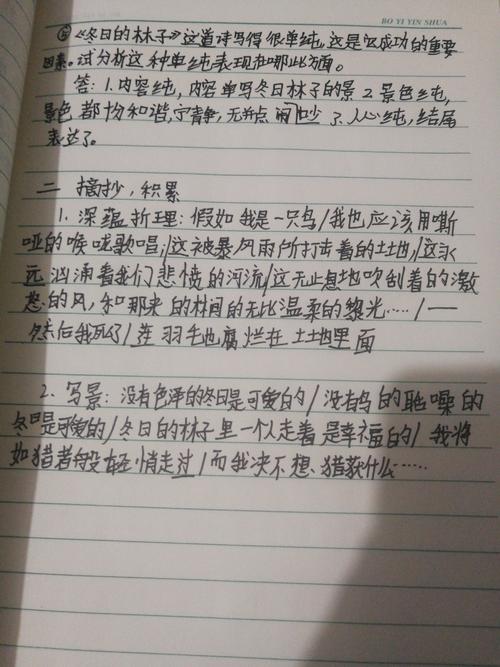 BO YI YIN SHUA
⑤《冬日的林子》这首诗写得很单纯,这是它成功的重要
因素。试分析这种单纯表现在哪些方面。
答:1.内容纯,内容单写冬日林子的景 2.景色纯,
景色都均和谐,宁静,无半点闹吵 3.人心纯,结尾
表达了。
二 摘抄,积累
1.深蕴哲理:假如我是一只鸟/我也应该用嘶
哑的喉咙歌唱:/这被暴风雨所打击着的土地,/这永
远汹涌着我们悲愤的河流/这无止息地吹刮着的激
怒的风,和那来的林间的无比温柔的黎光……/——
然后我死了/连羽毛也腐烂在土地里面
2.写景:没有色泽的冬日是可爱的/没有鸟的聒噪的
冬日是可爱的/冬日的林子里一个人走着是幸福的/我将
如猎者般轻悄走过/而我决不想猎获什么……